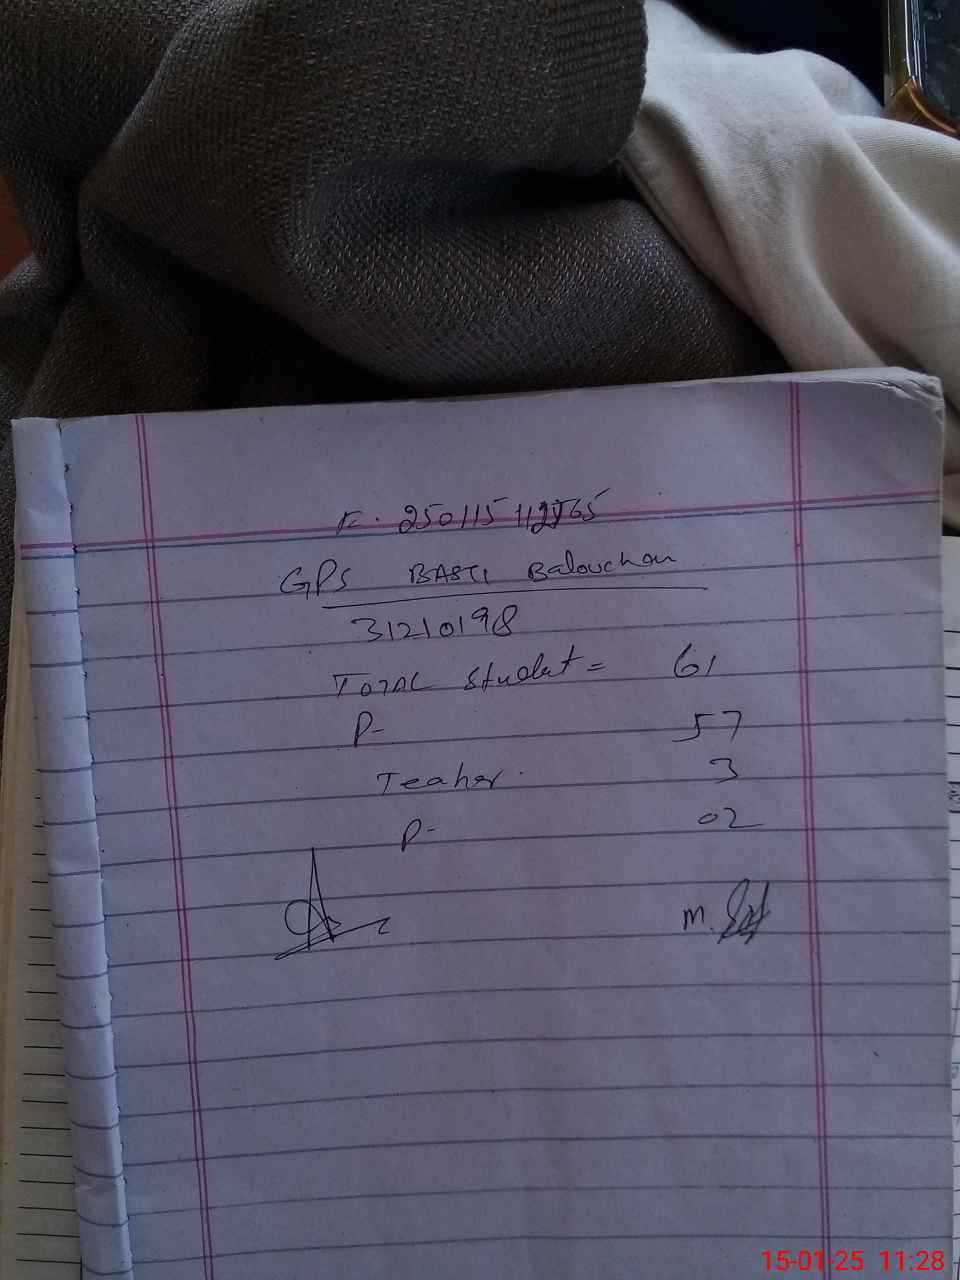 GPS BASTI Balouchan
31210198
TOTAL Student = 61
P- 57
Teaher. 3
P- 02
M.
15-01-25 11:28